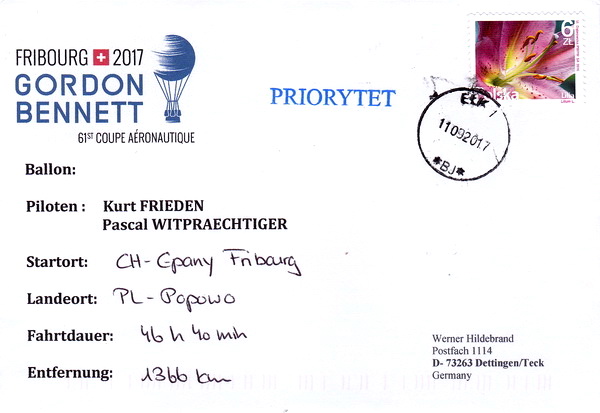 FRIBOURG 2017
GORDON
BENNETT
61ST COUPE AÉRONAUTIQUE
PRIORYTET
6
ZŁ
Polska
EŁK 1
11092017
*BJ*
Ballon:
Piloten : Kurt FRIEDEN
Pascal WITPRAECHTIGER
Startort: CH-Epany Fribourg
Landeort: PL-Popowo
Fahrtdauer: 46 h 40 min
Entfernung: 1366 km
Werner Hildebrand
Postfach 1114
D- 73263 Dettingen/Teck
Germany